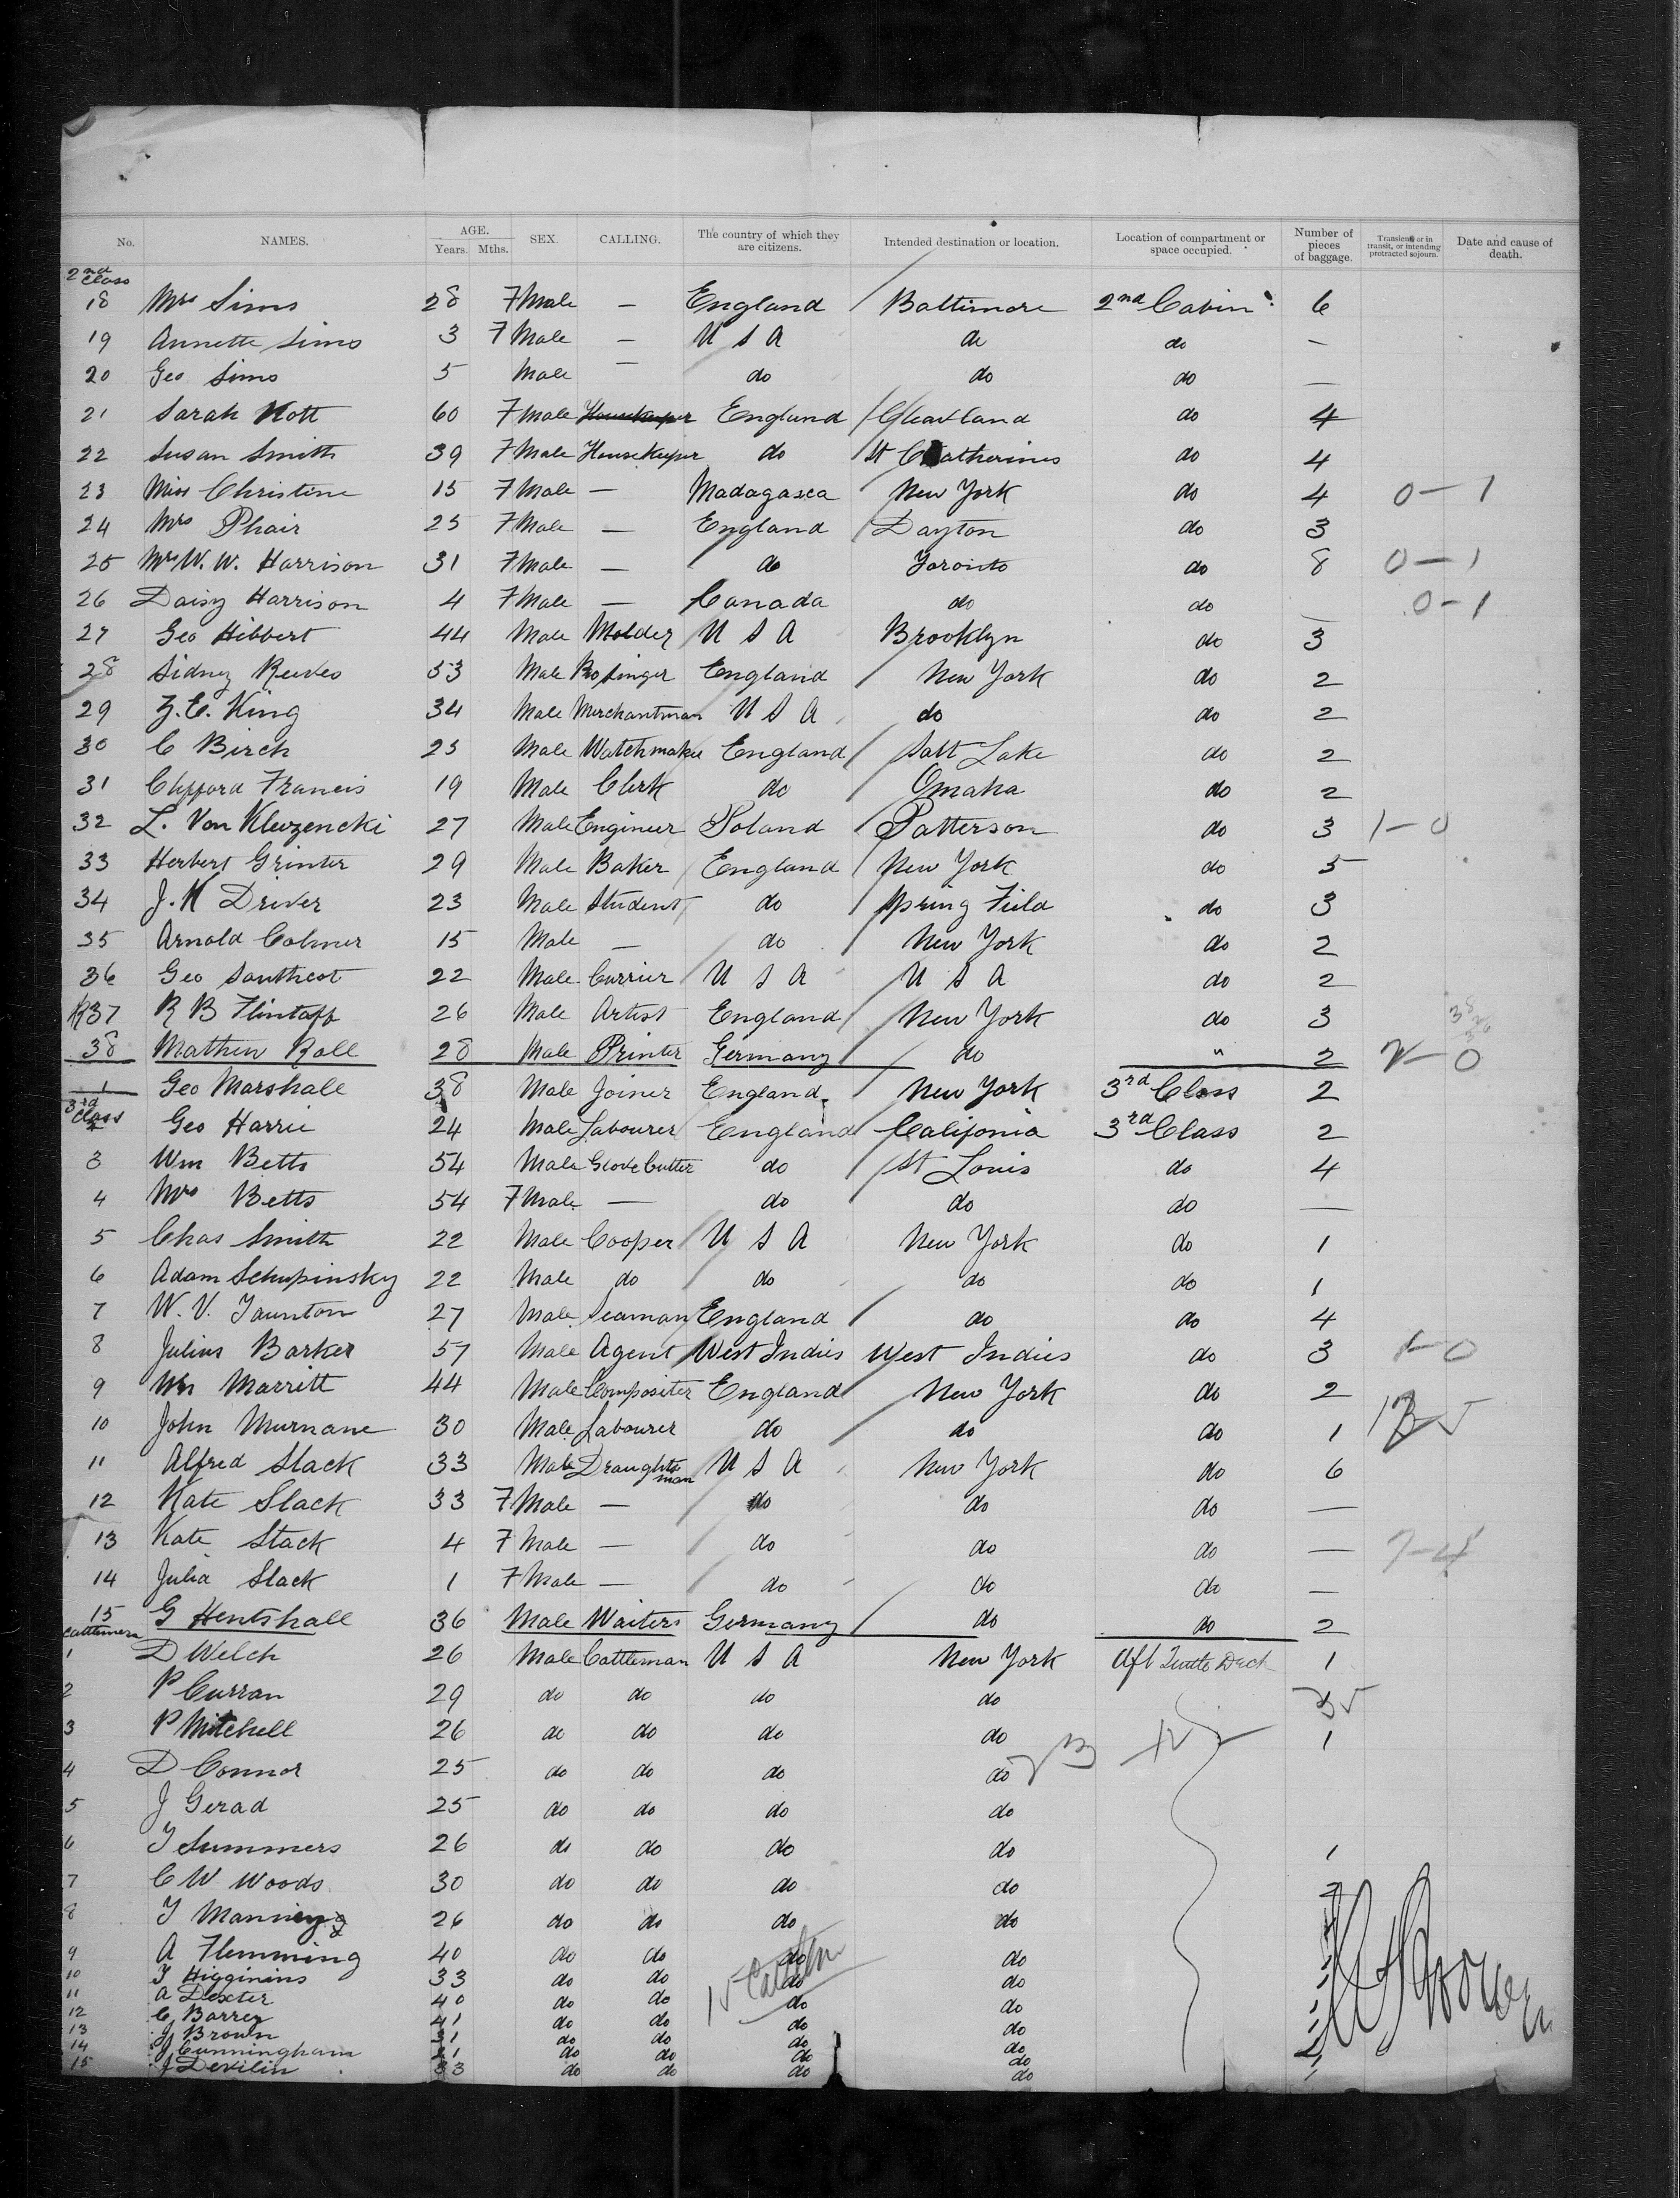 No. NAMES. AGE. Years. Mths. SEX. CALLING. The country of which they are citizens. Intended destination or location. Location of compartment or space occupied. Number of pieces of baggage. Transient or in transit, or intending protracted sojourn. Date and cause of death.
2nd Class
18 Mrs Sims 28 7Male — England Baltimore 2nd Cabin 6
19 Annette Sims 3 7Male — U S A do do —
20 Geo Sims 5 Male — do do do —
21 Sarah Nott 60 7Male Housekeeper England Cleavland do 4
22 Susan Smith 39 7Male HouseKeeper do St Catherines do 4
23 Miss Christine 15 7Male — Madagasca New York do 4 0–1
24 Mrs Phair 25 7Male — England Dayton do 3
25 Mrs W. W. Harrison 31 7Male — do Toronto do 8 0–1
26 Daisy Harrison 4 7Male — Canada do do — 0–1
27 Geo Hibbert 44 Male Molder U S A Brooklyn do 3
28 Sidney Reeves 33 Male Pro Singer England New York do 2
29 Z. E. King 34 Male Merchantman U S A do do 2
30 C Birch 23 Male Watchmaker England Salt Lake do 2
31 Clifford Francis 19 Male Clerk do Omaha do 2
32 L. Von 27 Male Engineer Poland Patterson do 3 1–0
33 Herbert Grinter 29 Male Baker England New York do 5
34 J. K Driver 23 Male Student do Spring Field do 3
35 Arnold Colmer 15 Male — do New York do 2
36 Geo Southcot 22 Male Currier U S A U S A do 2
37 R B Flintaff 26 Male Artist England New York do 3
38 Mathew Roll 28 Male Printer Germany do " 2 – 0
1 Geo Marshall 38 Male Joiner England New York 3rd Class 2
3rd Class
2 Geo Harrie 24 Male Labourer England Califonia 3rd Class 2
3 Wm Betts 54 Male Glove Cutter do St Louis do 4
4 Mrs Betts 54 7Male — do do do —
5 Chas Smith 22 Male Cooper U S A New York do 1
6 Adam Schupinsky 22 Male do do do do 1
7 W. V. Taunton 27 Male Seaman England do do 4
8 Julius Barker 57 Male Agent West Indies West Indies do 3 1–0
9 Wm Marritt 44 Male Compositer England New York do 2
10 John Murnane 30 Male Labourer do do do 1
11 Alfred Slack 33 Male Draughtsman U S A New York do 6
12 Kate Slack 33 7Male — do do do —
13 Kate Slack 4 7Male — do do do — 7–4
14 Julia Slack 1 7Male — do do do —
15 G Hentshall 36 Male Waiters Germany do do 2
Cattlemen
1 D Welch 26 Male Cattleman U S A New York Aft Deck 1
2 P Curran 29 do do do do
3 P Mitchell 26 do do do do 1
4 D Connor 25 do do do do
5 J Gerad 25 do do do do
6 T Summers 26 do do do do 1
7 C W Woods 30 do do do do 2
8 T Manning 26 do do do do
9 A Flemming 40 do do do do
10 T Higginins 33 do do do do
11 A Dexter 40 do do do do
12 C Barrey 41 do do do do
13 J Brown 31 do do do do
14 J Cunningham 21 do do do do
15 J Devilin 33 do do do do